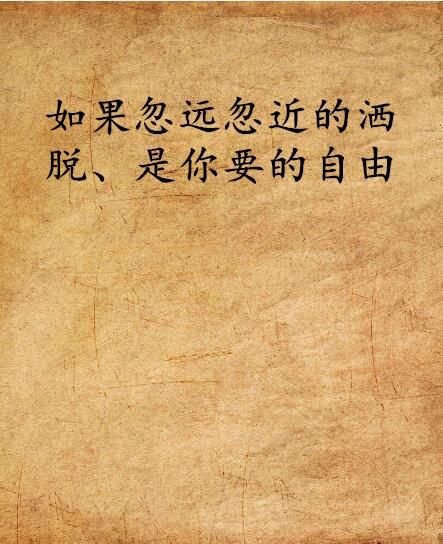 如果忽远忽近的洒
脱、是你要的自由